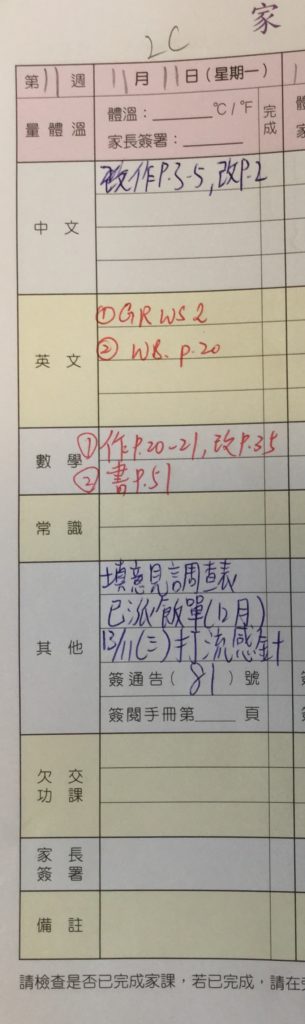 家
2C
第11週 11月11日(星期一)
量體溫 體溫：______℃/℉ 完成
家長簽署：______
中文 改作P.3-5,改P.2
英文 ①GR WS 2
② WB. p.20
數學 ①作P.20-21,改P.35
②書P.51
常識
其他 填意見調查表
已派飯單(12月)
13/11(三)打流感針
簽通告( 81 )號
簽閱手冊第____頁
欠交功課
家長簽署
備註
請檢查是否已完成家課，若已完成，請在